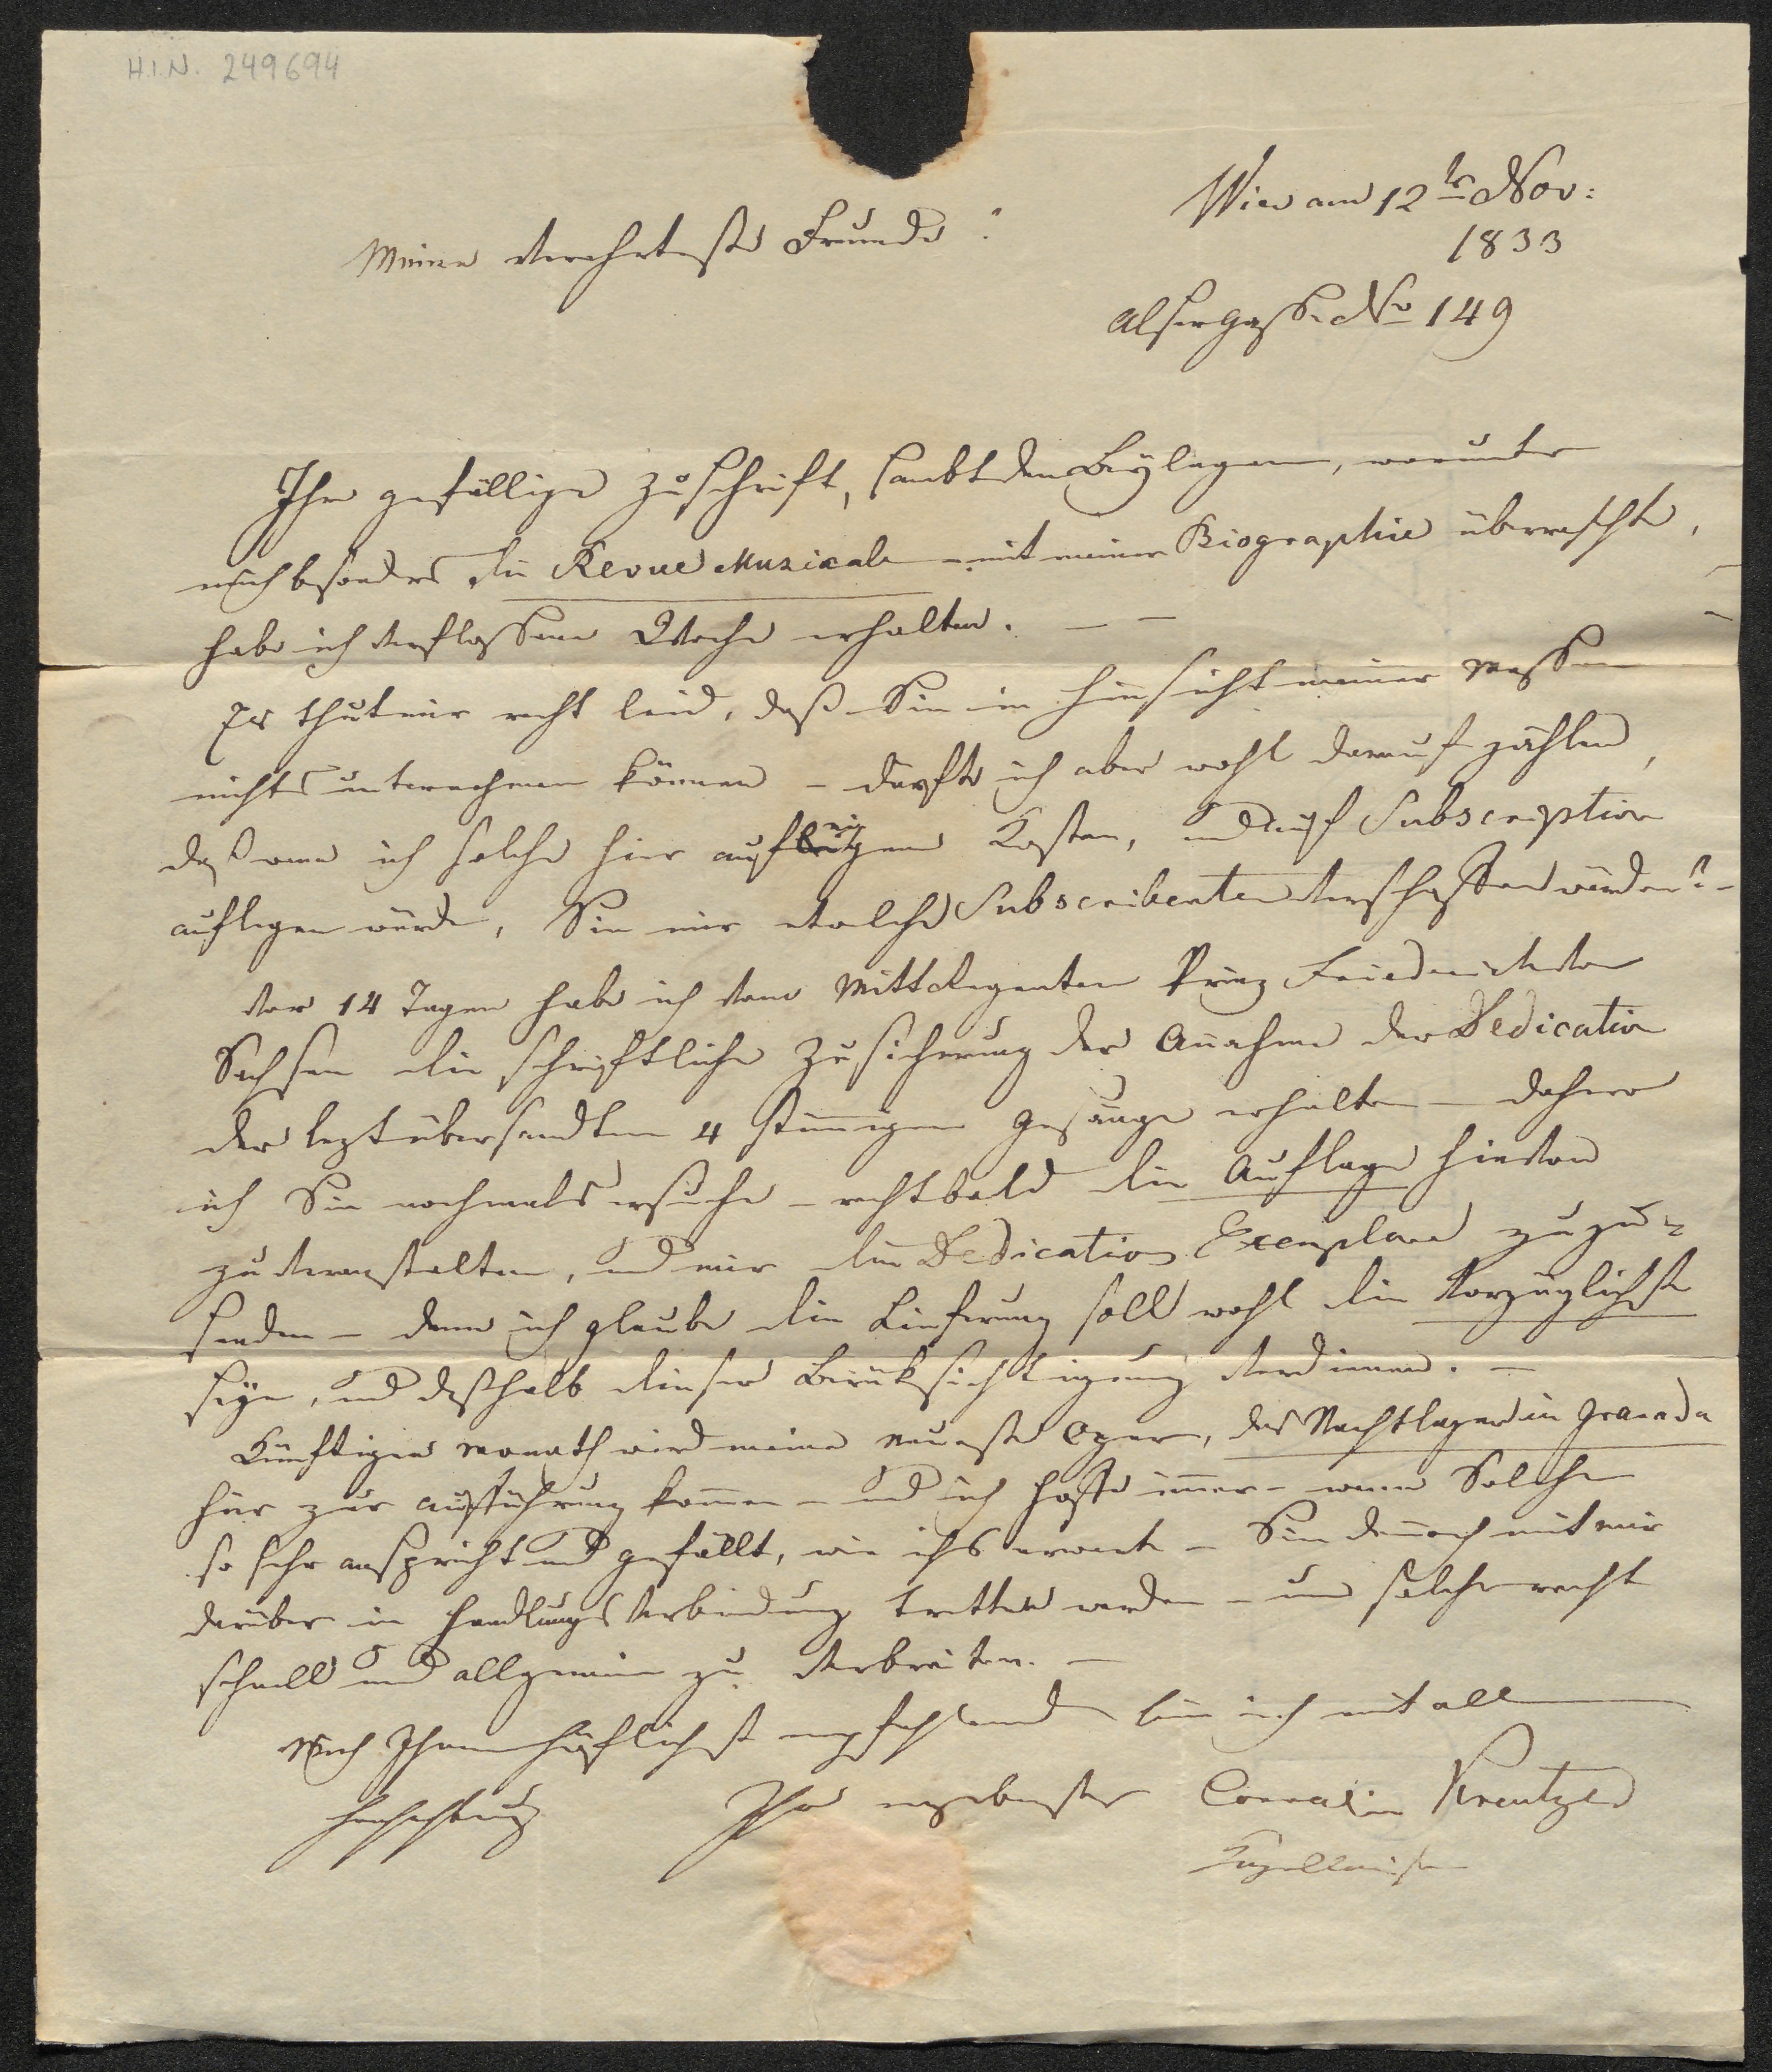 H.I.N. 249694
Wien am 12ten Nov:
1833
Meine Verehrteste Freunde!
Alsergasse No 149
Ihre gefällige Zuschrift, sambt den Beylagen, worunter
mich besonders die Revue Musicale - mit meiner Biographie überraschte,
habe ich verflossene Woche erhalten. — —
Es thut mir recht leid, daß Sie in Hinsicht meiner Messen
nichts unternehmen können - dürfte ich aber wohl darauf zählen,
daß wenn ich solche hier auf eigene Kosten, und auf Subscription
auflegen würde, Sie mir welche Subscribenten verschaffen würden? -
Vor 14 Tagen habe ich vom Mitt Regenten Prinz Friedrich von
Sachsen die schriftliche Zusicherung der Annahme der Dedication
der lezt übersandten 4 stimmigen Gesänge erhalten - dahero
ich Sie nochmals ersuche - recht bald die Auflage hievon
zu veranstalten, und mir die Dedications Exemplare zuzu=
senden - denn ich glaube die Lieferung soll wohl die Vorzüglichste
seyn, und deßhalb dieser Berüksichtigung verdienen. —
Künftigen Monath wird meine neueste Oper, das Nachtlager in Granada
hier zur Aufführung kommen - und ich hoffe immer - wenn Solche
so sehr anspricht und gefällt, wie ichs erwarte - Sie dennoch mit mir
darüber in Handlungs Verbindung tretten werden - um solche recht
schnell und allgemein zu verbreiten. —
Mich Ihnen höflichst empfehlend bin ich mit all
Hochachtung Ihr ergebenster Conradin Kreutzer
Kapellmeister